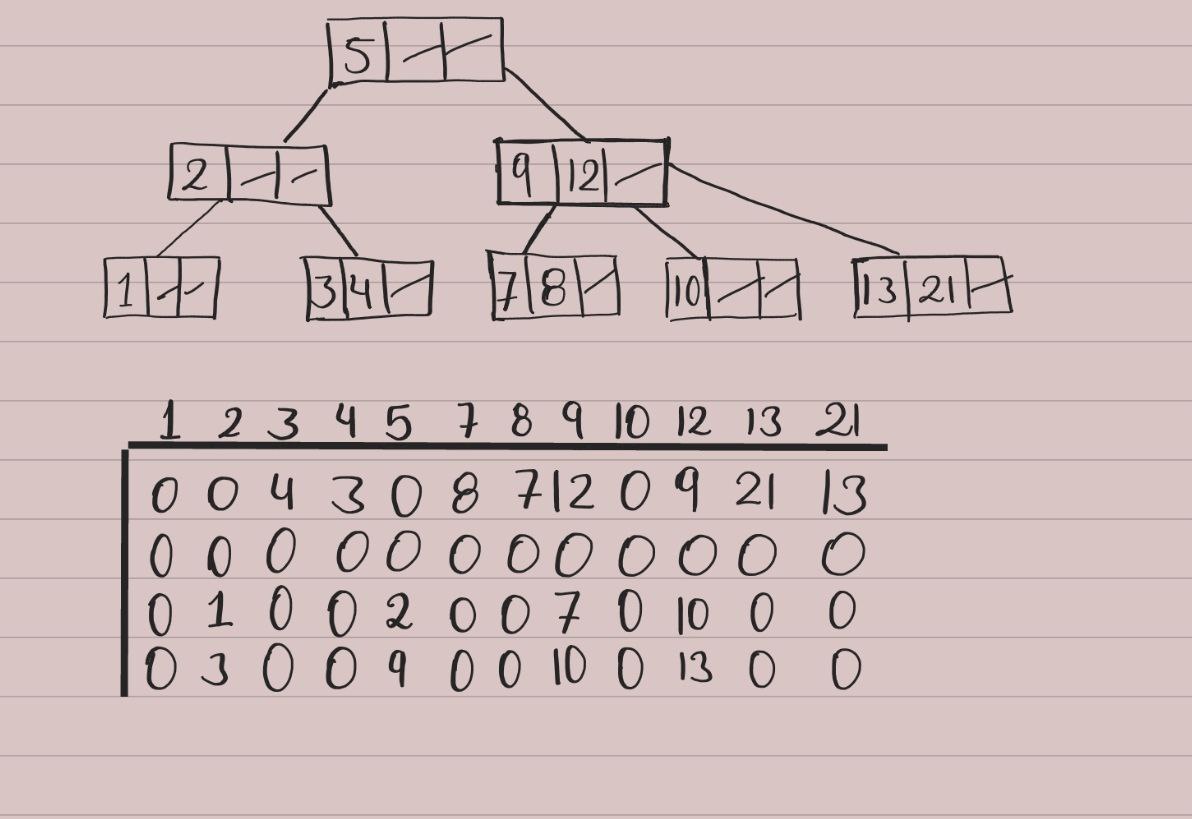 5
2 9 12
1 3 4 7 8 10 13 21
1 2 3 4 5 7 8 9 10 12 13 21
0 0 4 3 0 8 7 12 0 9 21 13
0 0 0 0 0 0 0 0 0 0 0 0
0 1 0 0 2 0 0 7 0 10 0 0
0 3 0 0 9 0 0 10 0 13 0 0